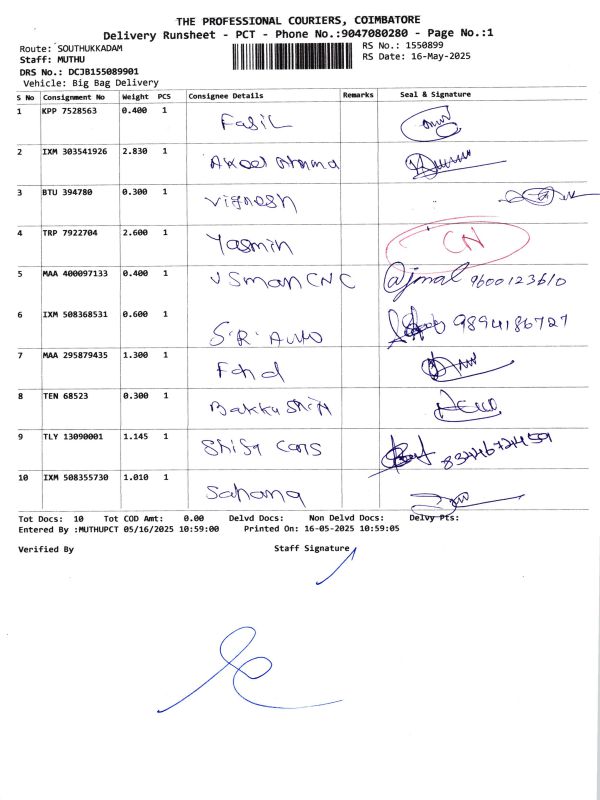 THE PROFESSIONAL COURIERS, COIMBATORE
Delivery Runsheet - PCT - Phone No.:9047080280 - Page No.:1
Route: SOUTHUKKADAM RS No.: 1550899
Staff: MUTHU RS Date: 16-May-2025
DRS No.: DCJB155089901
Vehicle: Big Bag Delivery
S No Consignment No Weight PCS Consignee Details Remarks Seal & Signature
1 KPP 7528563 0.400 1 Fasil
2 IXM 303541926 2.830 1
3 BTU 394780 0.300 1 Vignesh
4 TRP 7922704 2.600 1 Yasmin CN
5 MAA 400097133 0.400 1 USman CNC Ajmal 9600123610
6 IXM 508368531 0.600 1 S.R. Auto 9894186727
7 MAA 295879435 1.300 1 Fahd
8 TEN 68523 0.300 1
9 TLY 13090001 1.145 1 Shifa Cars 8344672459
10 IXM 508355730 1.010 1 Sahana
Tot Docs: 10 Tot COD Amt: 0.00 Delvd Docs: Non Delvd Docs: Delvy Pts:
Entered By :MUTHUPCT 05/16/2025 10:59:00 Printed On: 16-05-2025 10:59:05
Verified By Staff Signature